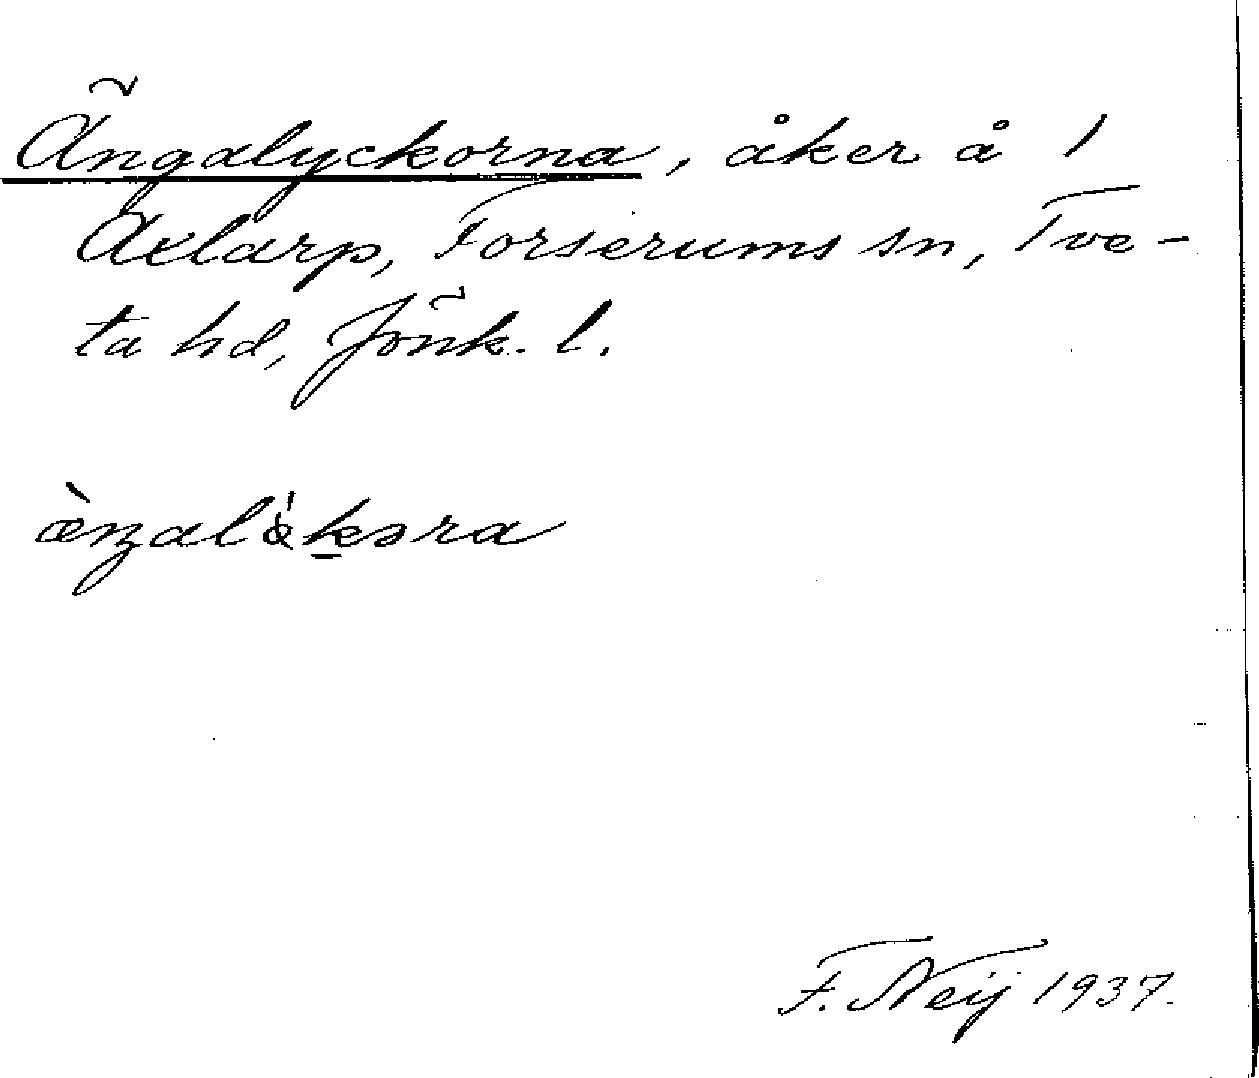 Ängalyckorna, åker å 1
Axlarp, Forserums sn, Tve-
ta hd, Jönk. l.
F. Neij 1937.